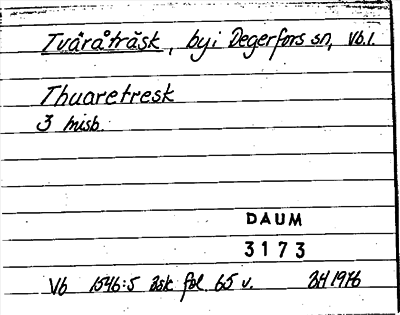 Tväråträsk, by i Degerfors sn, Vb.l.
Thuaretresk
3 misb.
DAUM
3173
Vb 1546:5 Bsk fol. 65 v. BH 1976